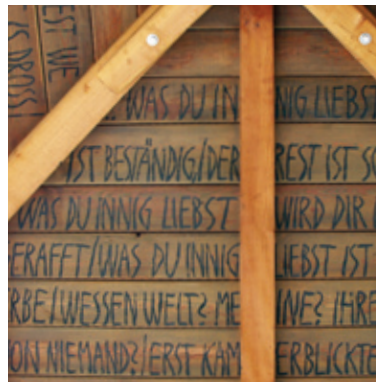 EST WE
IS DROSS!
WAS DU INNIG LIEBST
IST BESTÄNDIG/DER REST IST
WAS DU INNIG LIEBST WIRD DIR
ERAFFT/WAS DU INNIG LIEBST IST
RBE/WESSEN WELT? MEINE? IHRE
ON NIEMAND?/ERST KAM ERBLICKTE